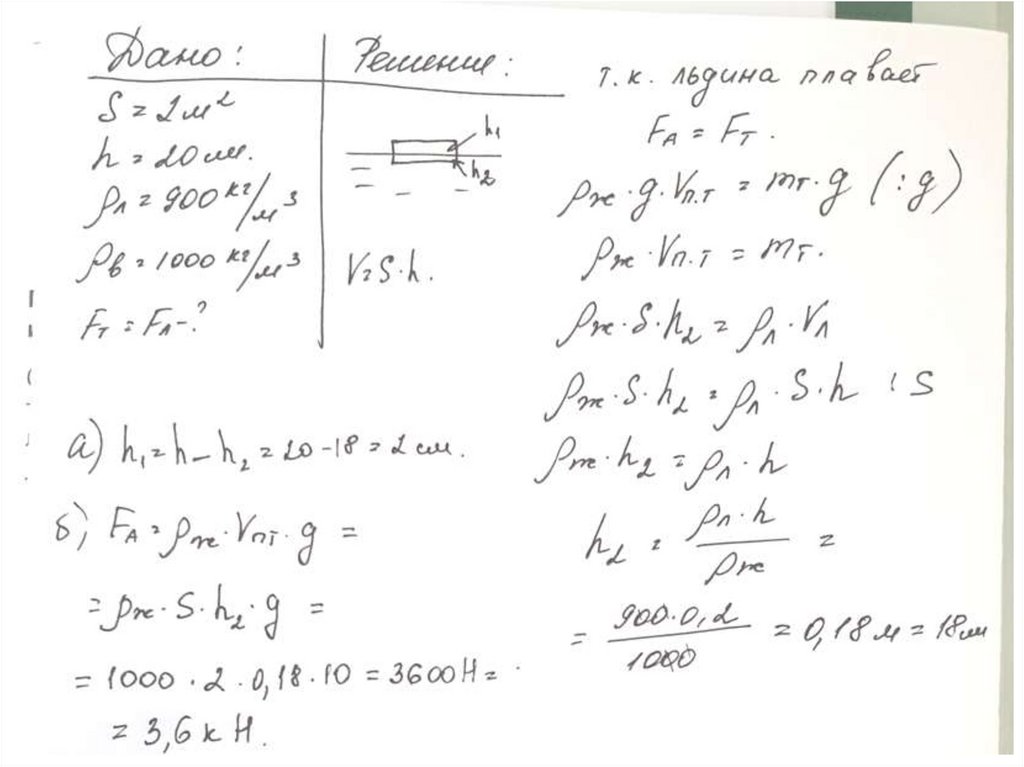 Дано:
S = 2 м²
h = 20 см.
ρл = 900 кг/м³
ρв = 1000 кг/м³
Fт = FА - ?
Решение:
h₁
h₂
V = S·h.
т.к. льдина плавает
FА = Fт.
ρж·g·Vп.т = mт·g (:g)
ρж·Vп.т = mт.
ρж·S·h₂ = ρл·Vл
ρж·S·h₂ = ρл·S·h :S
ρж·h₂ = ρл·h
h₂ = ρл·h / ρж =
= 900·0,2 / 1000 = 0,18 м = 18 см
а) h₁ = h – h₂ = 20 - 18 = 2 см.
б) FА = ρж·Vпт·g =
= ρж·S·h₂·g =
= 1000·2·0,18·10 = 3600 Н =
= 3,6 к Н.